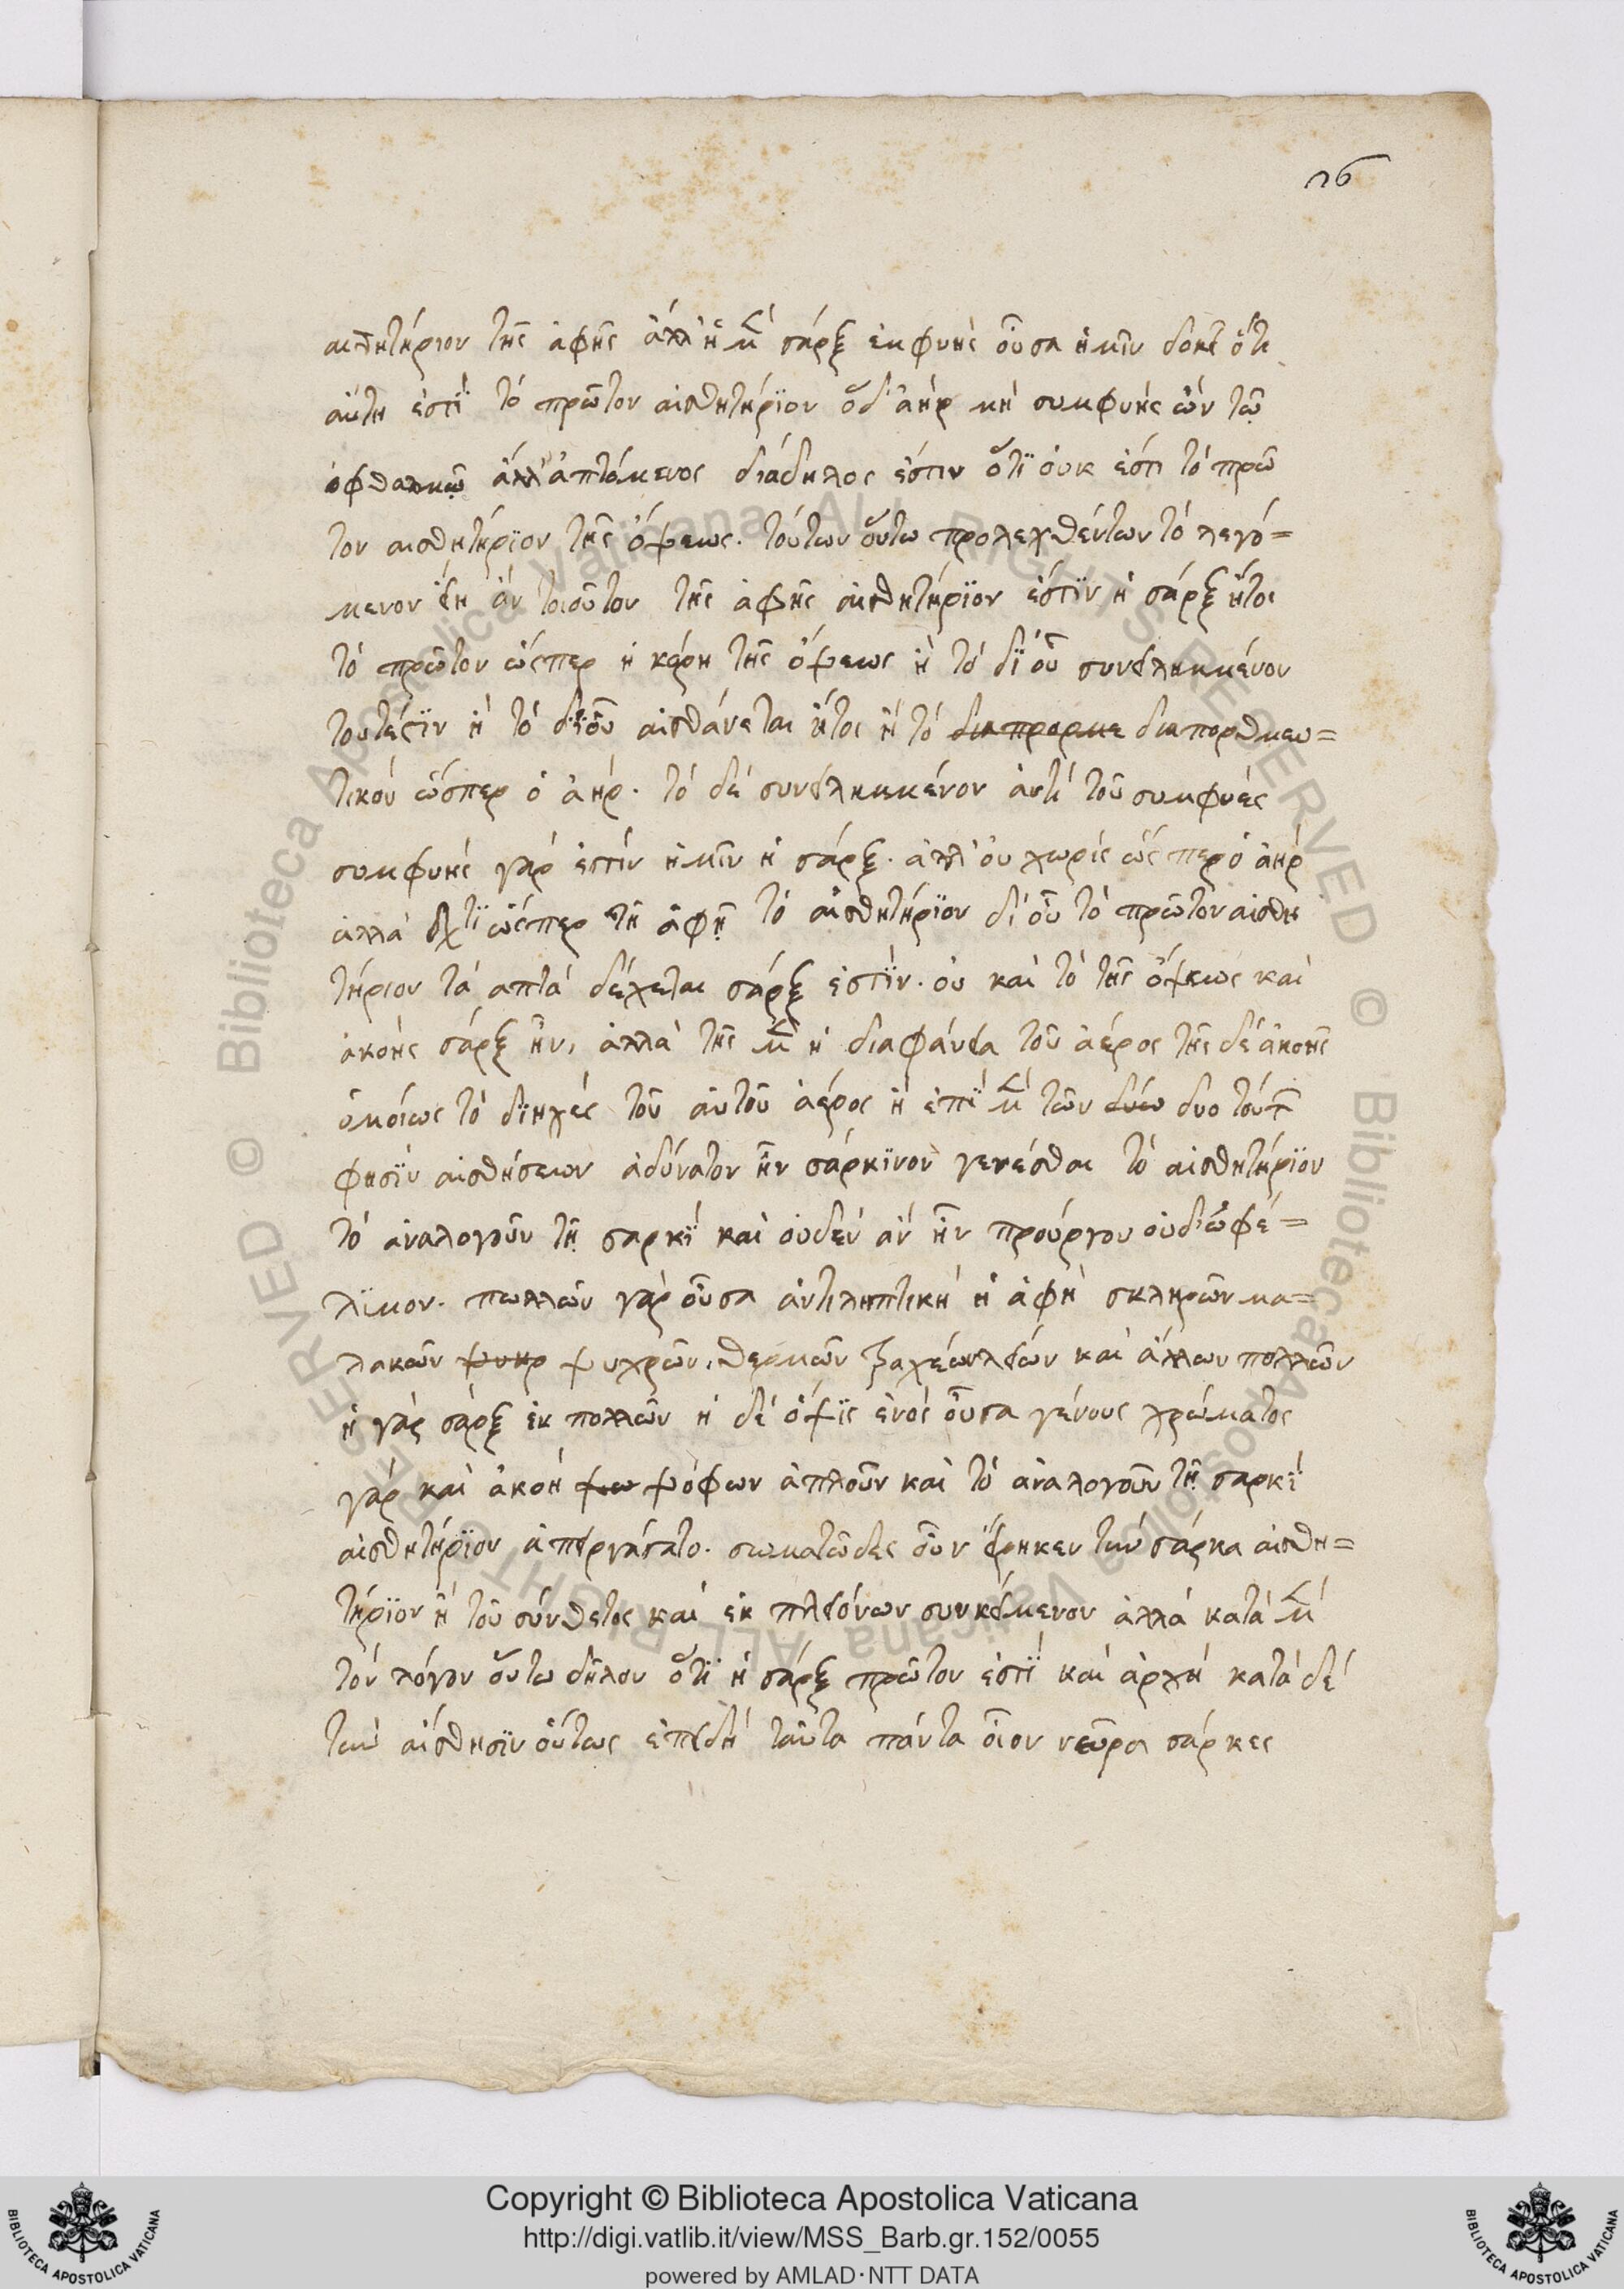 26
αισθητήριον τῆς ἀφῆς ἀλλ' ἡ μ(ὲν) σάρξ ἐμφυὴς οὖσα ἡμῖν δοκεῖ ὅτι
αὕτη ἐστὶ τὸ πρῶτον αἰσθητήριον ὁ δ' ἀὴρ μὴ συμφυὴς ὢν τῶ
ὀφθαλμῶ ἀλλ' ἁπτόμενος διάδηλος ἐστιν ὅτι οὐκ ἐστι τὸ πρῶ
τον αισθητήριον τῆς ὄψεως. τούτων οὕτω προλεχθέντων τὸ λεγό=
μενον εἴη ἂν τοιοῦτον τῆς ἁφῆς αἰσθητήριον ἐστὶν ἡ σάρξ ἤτοι
τὸ πρῶτον ὥσπερ ἡ κόρη τῆς ὄψεως ἢ τὸ δι' οὗ συνειλημμένον
τουτέστιν ἢ τὸ δι' οὗ αἰσθάνεται ἤτοι ἢ τὸ διαπρορμε διαπορθμευ=
τικὸν ὥσπερ ὁ ἀήρ. τὸ δὲ συνειλημμένον ἀντὶ τοῦ συμφυὲς
συμφυὴς γάρ ἐστιν ἡμῖν ἡ σάρξ. ἀλλ' οὐ χωρὶς ὥσπερ ὁ ἀὴρ
ἀλλὰ τί ὥσπερ τῆ ἁφῆ τὸ αἰσθητήριον δι' οὗ τὸ πρῶτον αἰσθη
τήριον τὰ απτὰ δέχεται σάρξ ἐστὶν. οὐ καὶ τὸ τῆς ὄψεως καὶ
ἀκοῆς σάρξ ἦν, ἀλλὰ τῆς μ(ὲν) ἡ διαφάνεια τοῦ ἀέρος τῆς δὲ ἀκοῆς
ὁμοίως τὸ διηχὲς τοῦ αὐτοῦ ἀέρος ἢ ἐπὶ μ(ὲν) τῶν δύω δυο τούτ
φησὶν αἰσθήσεων ἀδύνατον ἦν σάρκινον γενέσθαι τὸ αἰσθητήριον
τὸ ἀναλογοῦν τῆ σαρκὶ καὶ οὐδὲν ἂν ἦν προύργου οὐδ' ὠφέ=
λιμον. πωλλῶν γὰρ οὖσα ἀντιληπτικὴ ἡ ἁφὴ σκληρῶν μα=
λακῶν ψυκρ ψυχρῶν, θερμῶν τραχέων λείων καὶ ἄλλων πολλῶν
ἡ γὰρ σάρξ ἐκ πολλῶν ἡ δὲ ὄψις ἑνὸς οὖσα γένους χρώματος
γὰρ καὶ ἀκοὴ ψω ψόφων ἁπλοῦν καὶ τὸ ἀναλογοῦν τῆ σαρκὶ
αἰσθητήριον ἀπειργάσατο. σωματῶδες οὖν εἴρηκεν τὴν σάρκα αἰσθη=
τήριον ἢ τοῦ σύνθετος καὶ ἐκ πλειόνων συνκείμενον ἀλλὰ κατὰ μ(ὲν)
τὸν λόγον οὕτω δῆλον ὅτι ἡ σάρξ πρῶτον ἐστὶ καὶ ἀρχὴ κατὰ δὲ
τὴν αἴσθησιν οὕτως ἐπειδὴ ταῦτα πάντα οἷον νεῦρα σάρκες
© Biblioteca Apostolica Vaticana ALL RIGHTS RESERVED © Biblioteca Apostolica Vaticana ALL RIGHTS RESERVED
Copyright © Biblioteca Apostolica Vaticana
http://digi.vatlib.it/view/MSS_Barb.gr.152/0055
powered by AMLAD·NTT DATA
BIBLIOTECA APOSTOLICA VATICANA
BIBLIOTECA APOSTOLICA VATICANA